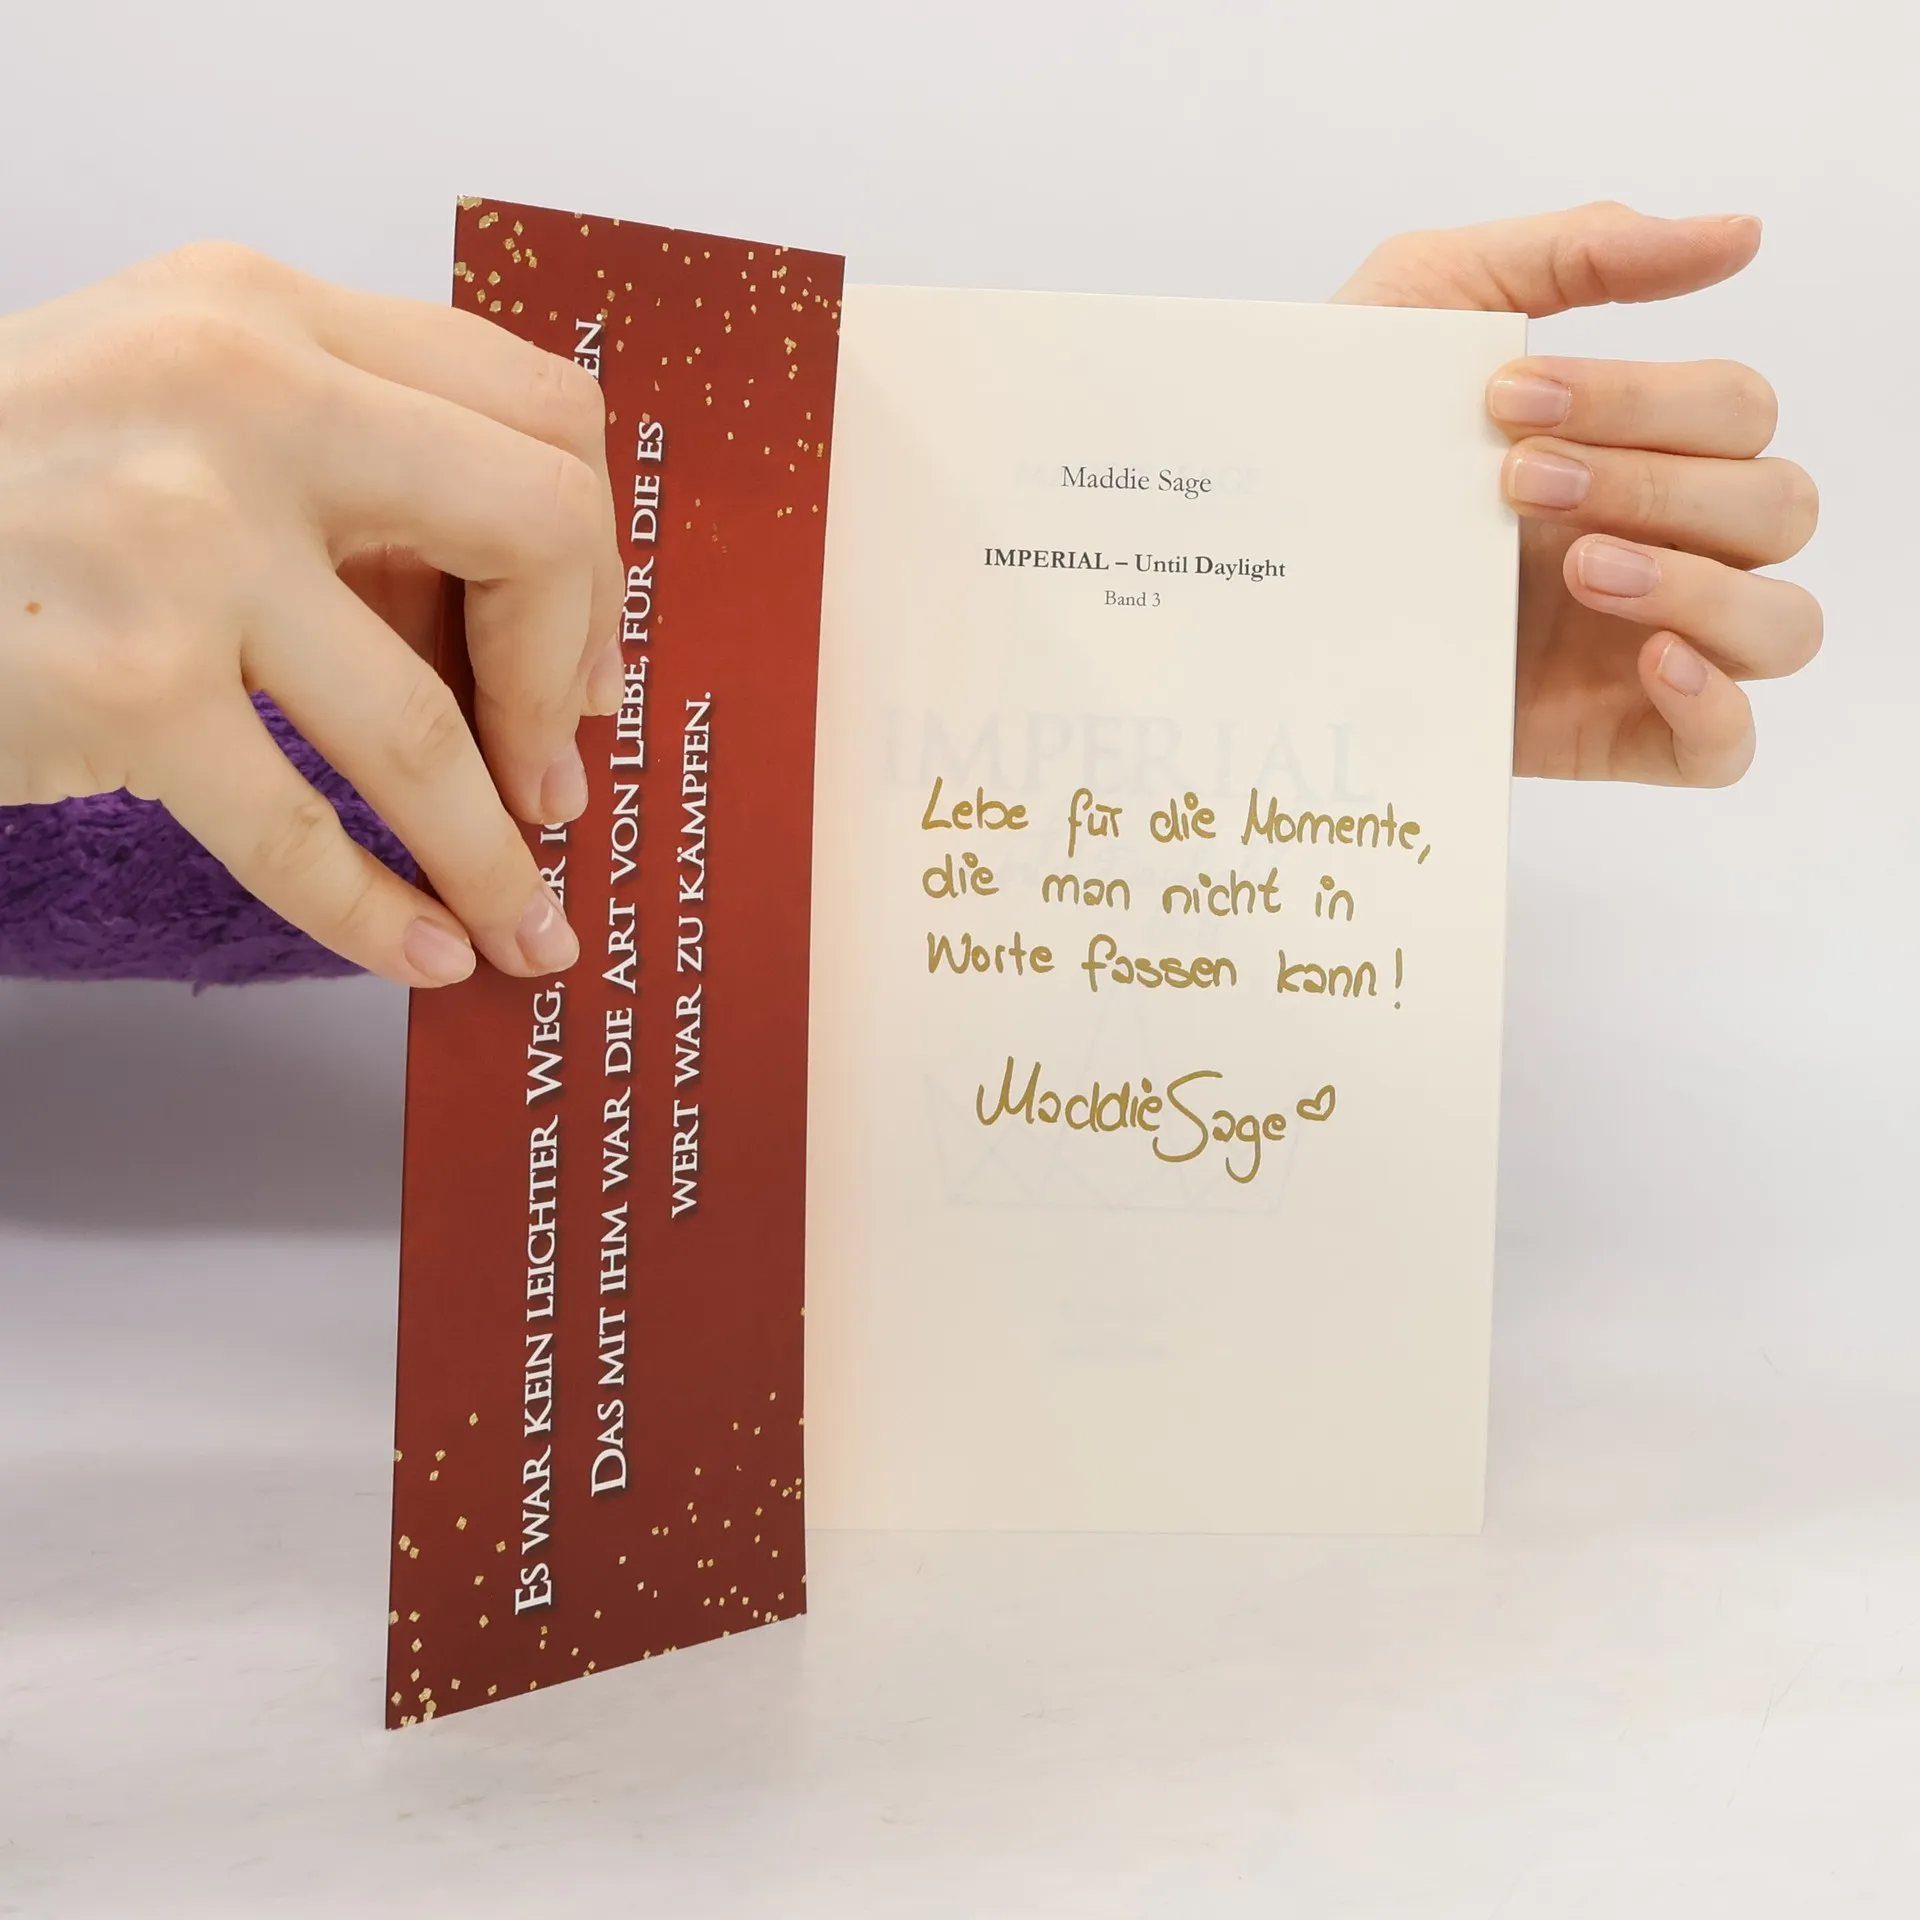 ES WAR KEIN LEICHTER WEG,
DAS MIT IHM WAR DIE ART VON LIEBE, FÜR DIE ES
WERT WAR ZU KÄMPFEN.
Maddie Sage
IMPERIAL – Until Daylight
Band 3
IMPERIAL
Lebe für die Momente,
die man nicht in
Worte fassen kann!
Maddie Sage